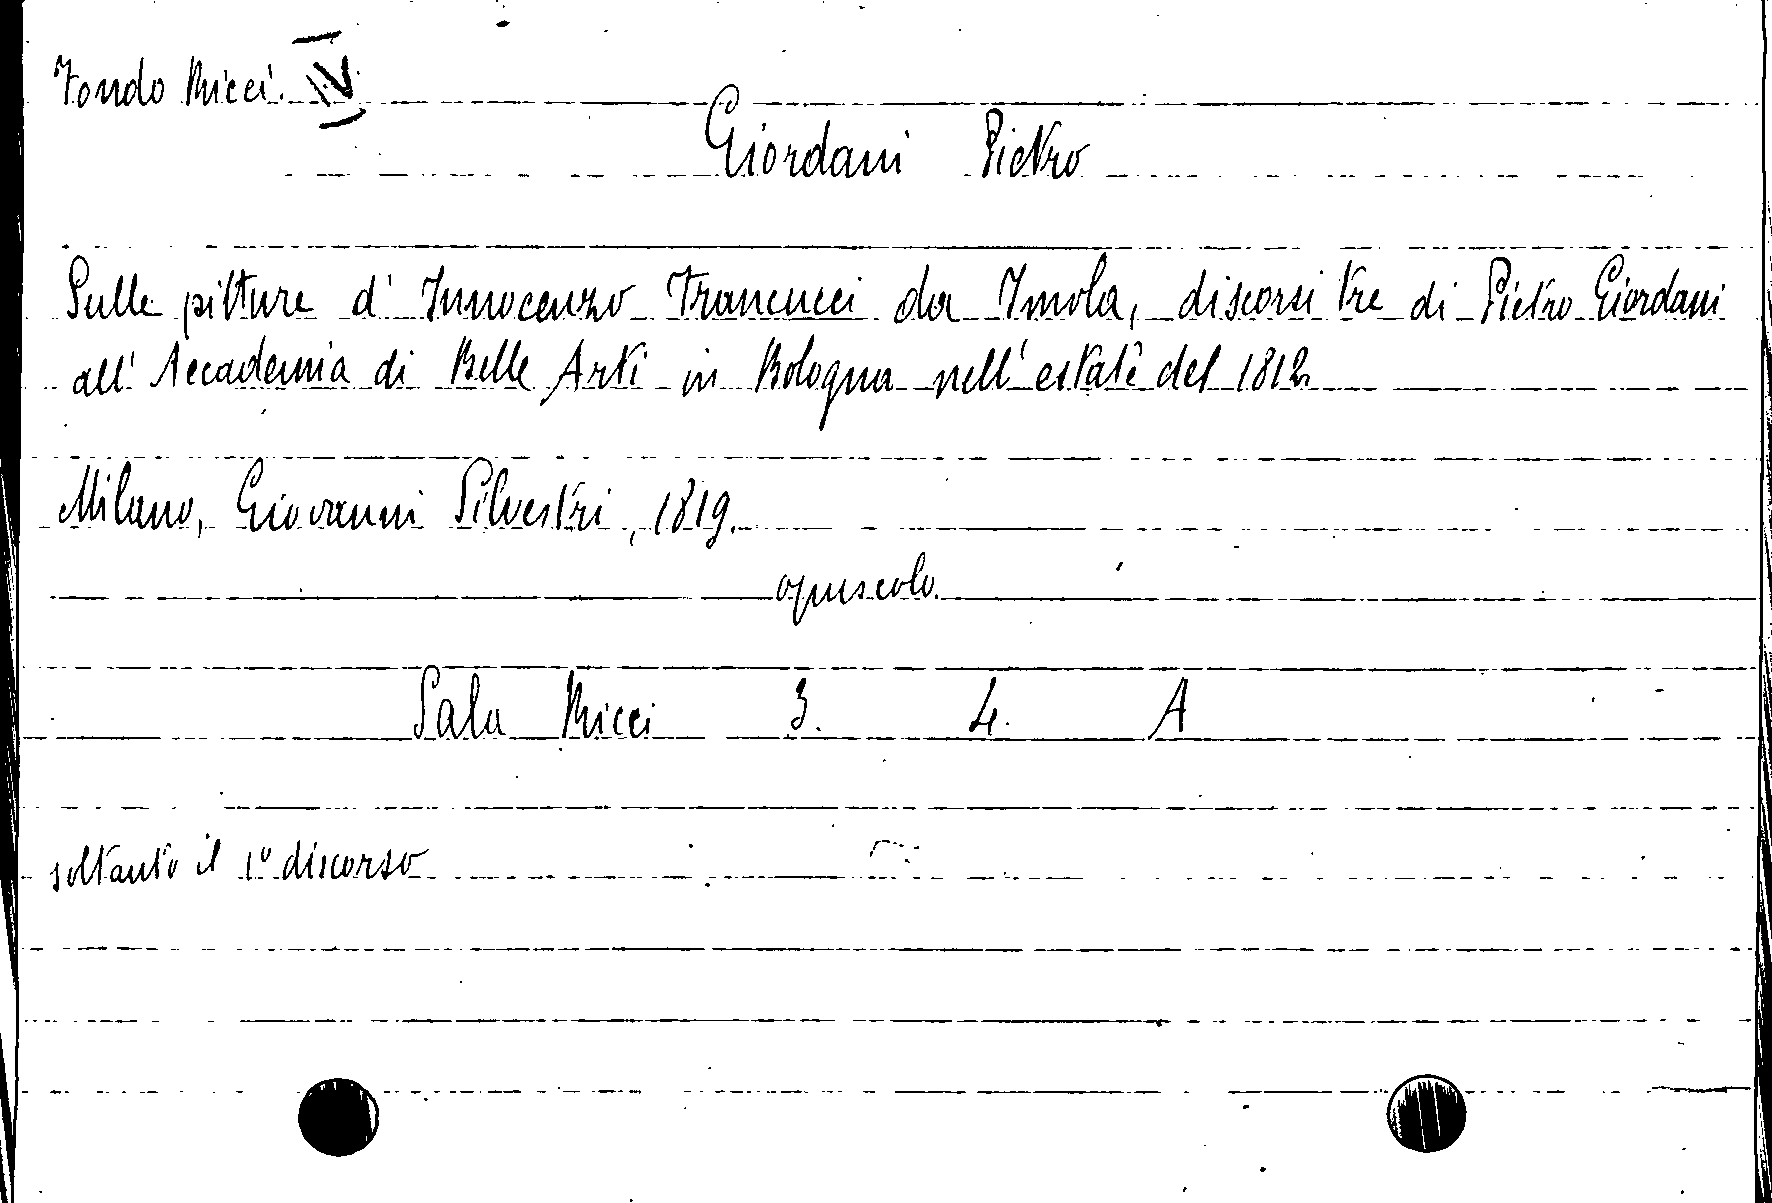 Fondo Ricci. IV
Giordani Pietro
Sulle pitture d' Innocenzo Francucci da Imola, discorsi tre di Pietro Giordani
all' Accademia di Belle Arti in Bologna nell' estate del 1812
Milano, Giovanni Silvestri, 1819.
opuscolo.
Sala Ricci 3. 4. A
soltanto il 1º discorso